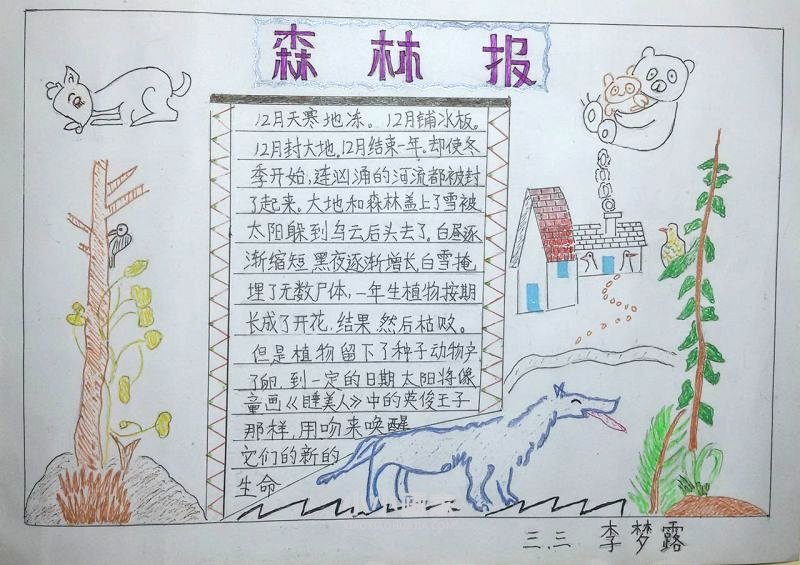 森林报
12月天寒地冻。12月铺冰板。
12月封大地,12月结束一年。却使冬
季开始,连汹涌的河流都被封
了起来。大地和森林盖上了雪被
太阳躲到乌云后头去了。白昼逐
渐缩短,黑夜逐渐增长,白雪掩
埋了无数尸体,一年生植物按期
长成了开花.结果.然后枯败。
但是植物留下了种子动物产
了卵.到一定的日期太阳将像
童画《睡美人》中的英俊王子
那样,用吻来唤醒
它们的新的
生命
三.三 李梦露